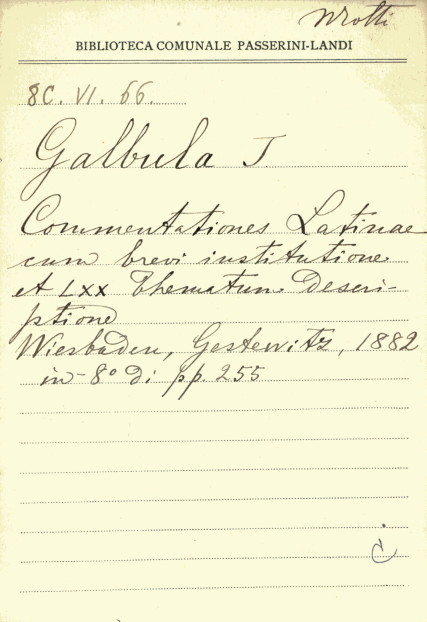 BIBLIOTECA COMUNALE PASSERINI-LANDI
8C. VI. 66.
Galbula J
Commentationes Latinae
cum brevi institutione
et LXX Thematum Descri-
ptione
Wiesbaden, Gestewitz, 1882
in-8º di pp. 255
C